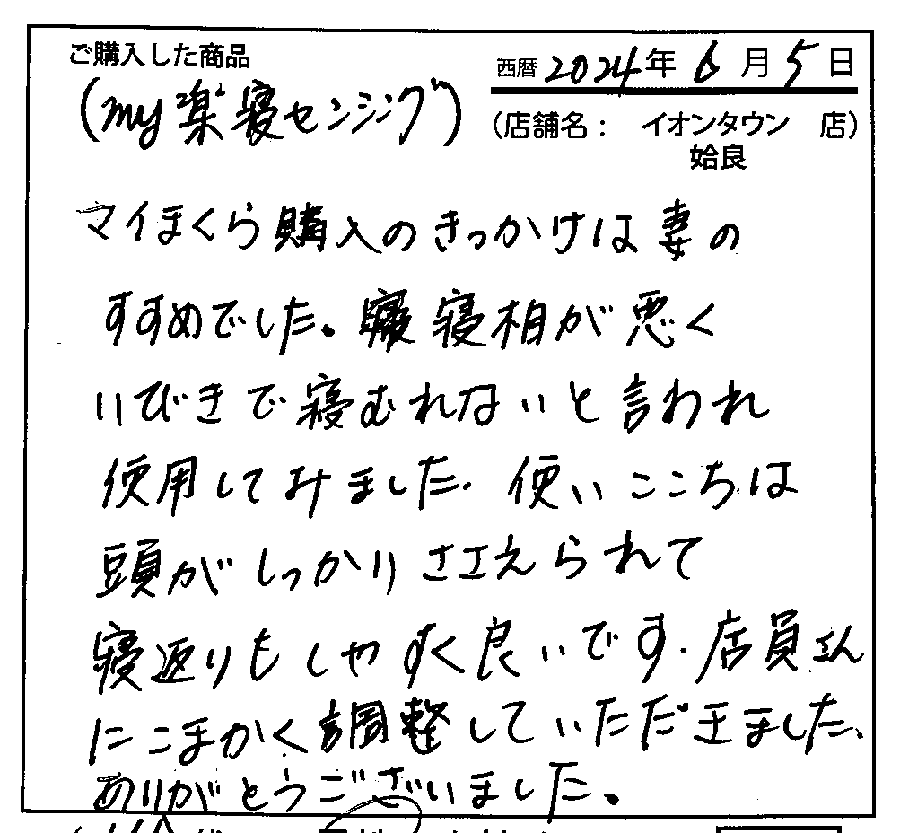 ご購入した商品
西暦2024年6月5日
(my楽寝センシング)
(店舗名： イオンタウン 店)
姶良
マイまくら購入のきっかけは妻の
すすめでした。寝相が悪く
いびきで寝むれないと言われ
使用してみました。使いここちは
頭がしっかりささえられて
寝返りもしやすく良いです。店員さん
にこまかく調整していただきました、
ありがとうございました。